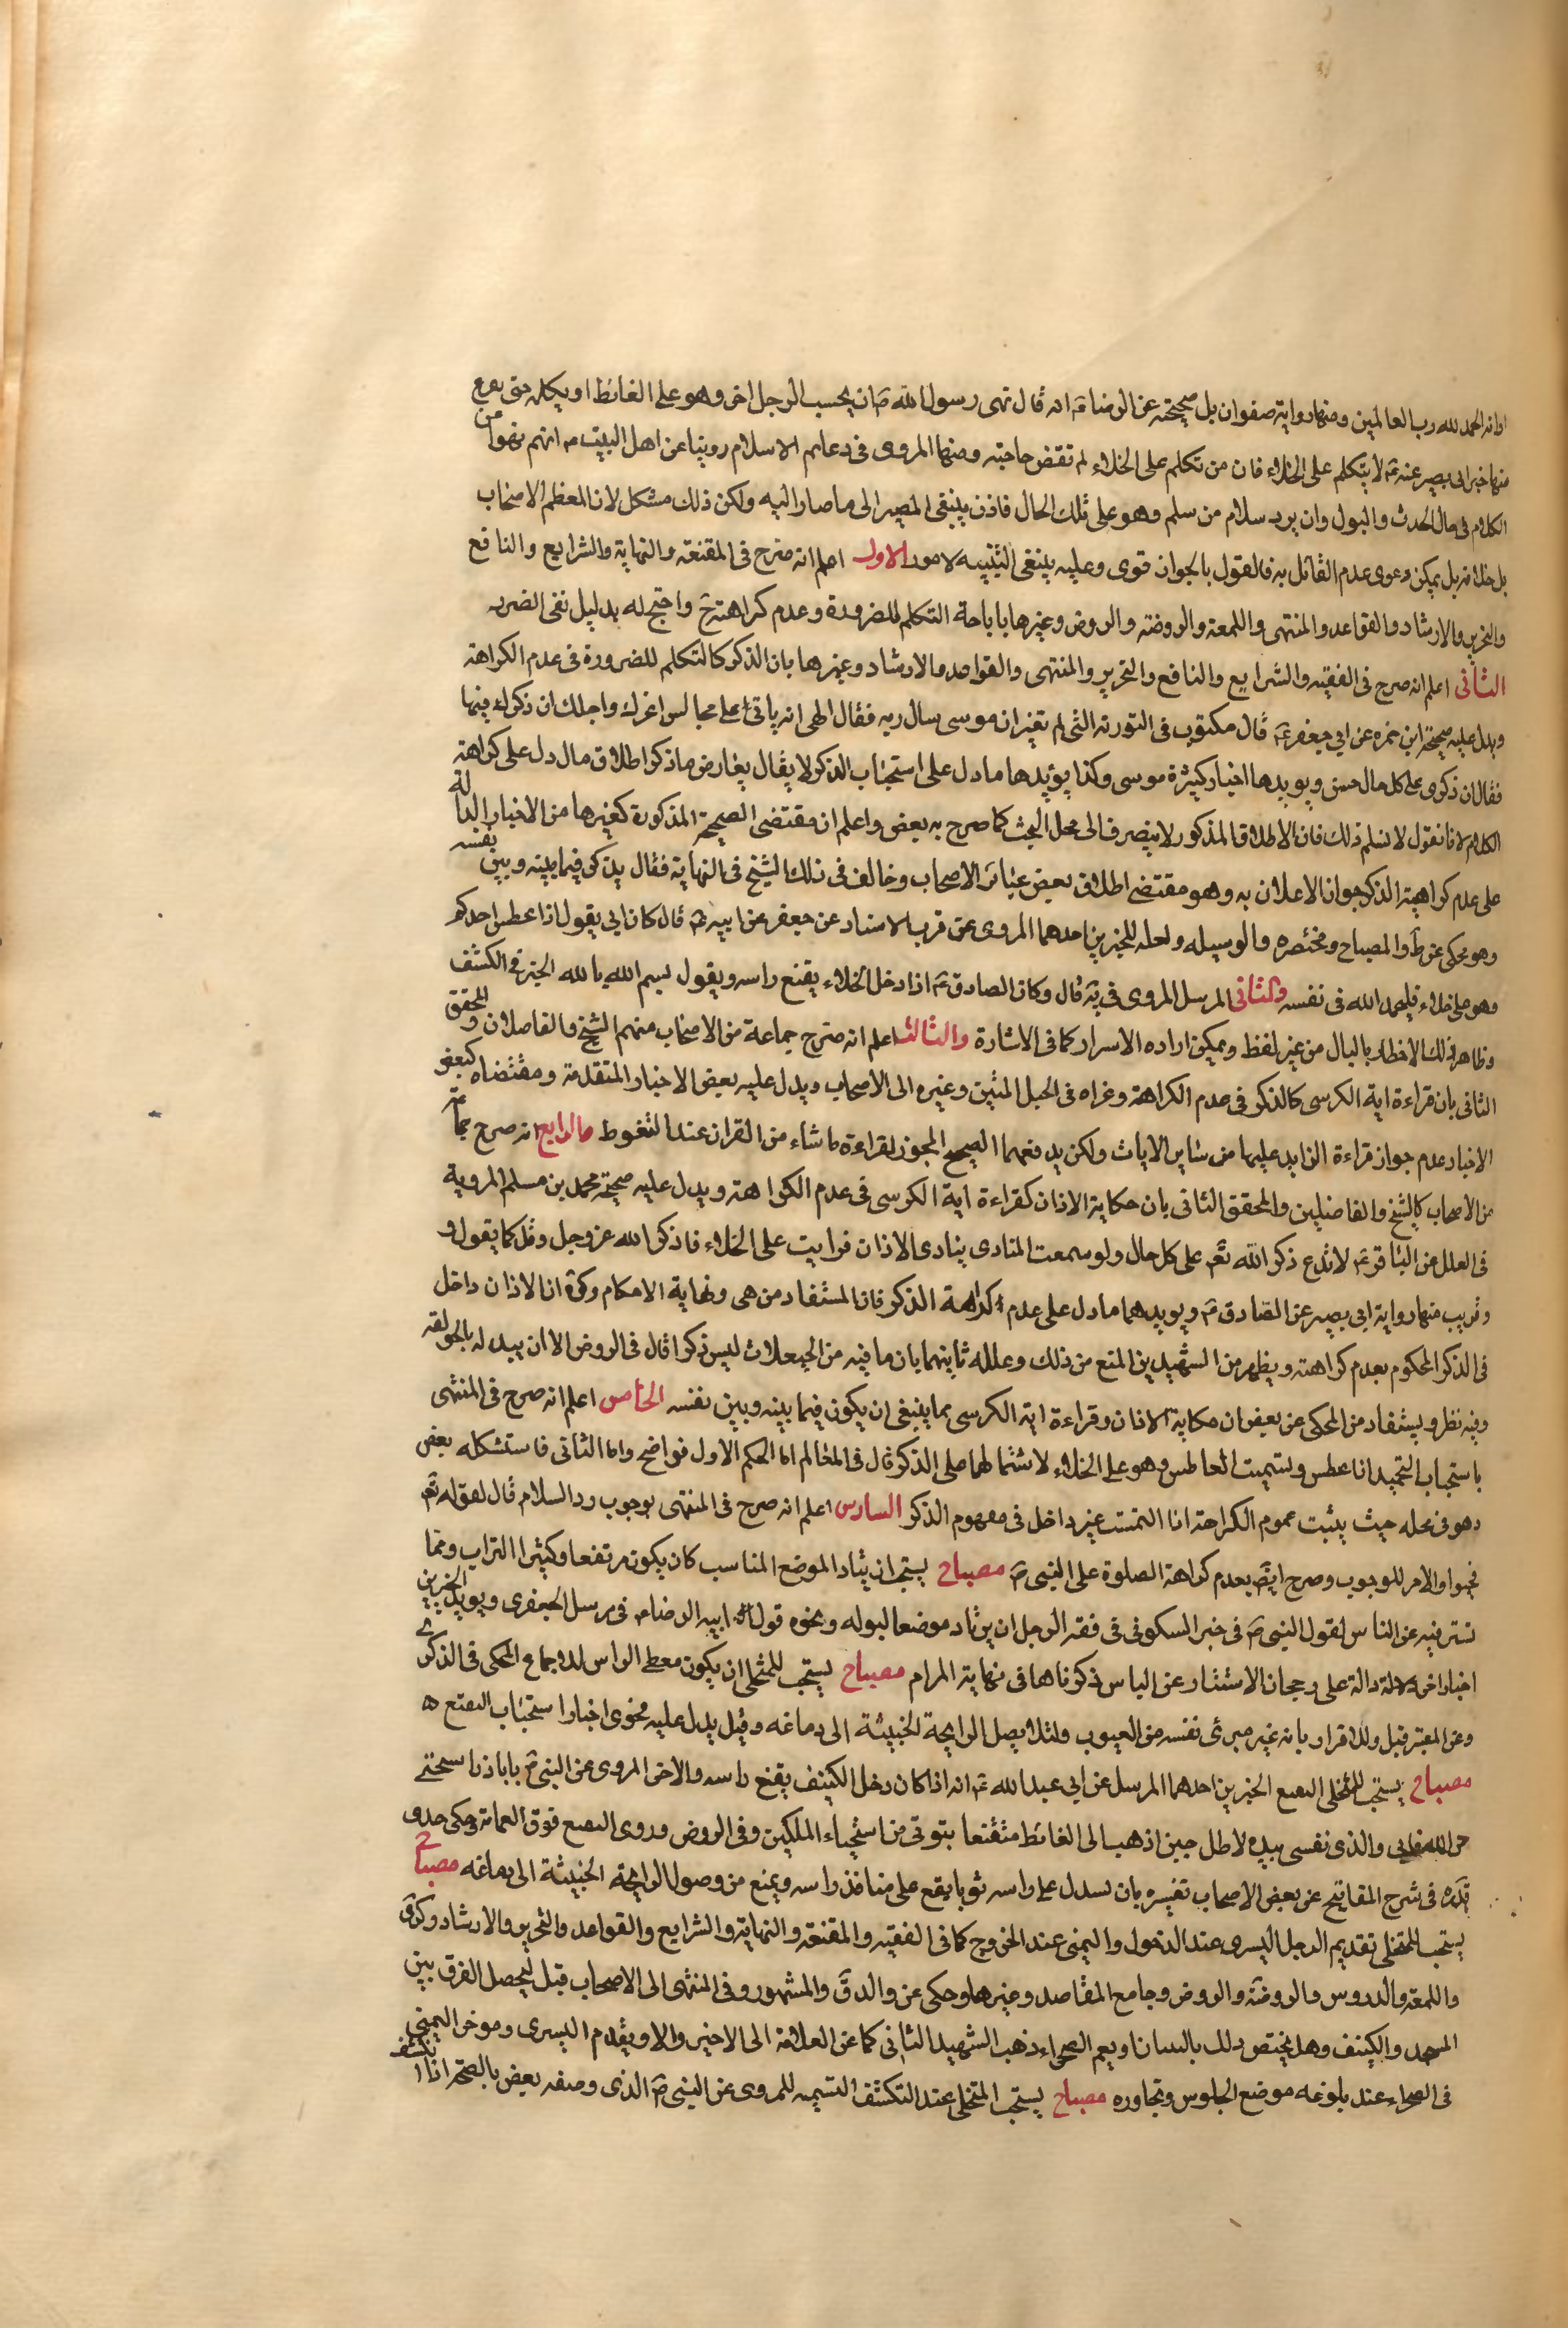 اوانه الحمد لله رب العالمين ومنها رواية صفوان بل صحيحته عن الرضا ع انه قال نهى رسول الله ص ان يجيب الرجل اخر وهو على الغائط او يكلمه حتى يفرغ
منها خبر ابى بصير عنه ع لا يتكلم على الخلاء فان من تكلم على الخلاء لم تقض حاجته ومنها المروى فى دعايم الاسلام روينا عن اهل البيت ع انهم نهوا عن
الكلام فى حال الحدث والبول وان يرد سلام من سلم وهو على تلك الحال فاذن ينبغى المصير الى ما صارا اليه ولكن ذلك مشكل لان المعظم الاصحاب
بل خلافه بل يمكن دعوى عدم القائل به فالقول بالجواز قوى وعليه ينبغى التنبيه لامور الاول اعلم انه صرح فى المقنعة والنهاية والشرايع والنافع
والتحرير والارشاد والقواعد والمنتهى واللمعة والروضة والروض وغيرها باباحة التكلم للضرورة وعدم كراهته ح واحتج له بدليل نفى الضرر
الثانى اعلم انه صرح فى الفقيه والشرايع والنافع والتحرير والمنتهى والقواعد والارشاد وغيرها بان الذكر كالتكلم للضرورة فى عدم الكراهة
ويدل عليه صحيحة ابن حمزه عن ابي جعفر ع قال مكتوب فى التورية التى لم تغير ان موسى سال ربه فقال الهى انه ياتى على مجالس اعزك واجلك ان ذكرك فيها
فقال ان ذكرى على كل حال حسن ويويدها اخبار كثيرة موسى وكذا يؤيدها ما دل على استحباب الذكر لا يقال يعارض ما ذكر اطلاق ما دل على كراهة
الكلام لانا نقول لا نسلم ذلك فان الاطلاق المذكور لا ينصرف الى محل البحث كما صرح به بعض واعلم ان مقتضى الصحيحة المذكورة كغيرها من الاخبار الدالة
على عدم كراهية الذكر جواز الاعلان به وهو مقتضى اطلاق بعض عبائر الاصحاب وخالف فى ذلك الشيخ فى النهاية فقال يذكر فيما بينه وبين نفسه
وهو محكى عن ط والمصباح ومختصره والوسيله ولعله للخبرين احدهما المروى عن قرب الاسناد عن جعفر عن ابيه ع قال كان ابي يقول اذا عطس احدكم
وهو على خلاء فليحمد الله فى نفسه والثانى المرسل المروى فى يه قال وكان الصادق ع اذا دخل الخلاء يقنع راسه ويقول بسم الله بالله الخبر وفى الكشف
وظاهر ذلك الاخطار بالبال من غير لفظ ويمكن اراده الاسرار كما فى الاشارة والثالث اعلم انه صرح جماعة من الاصحاب منهم الشيخ والفاضلان والمحقق
الثانى بان قراءة اية الكرسى كالذكر فى عدم الكراهة وعزاه فى الحبل المتين وغيره الى الاصحاب ويدل عليه بعض الاخبار المتقدمة ومقتضاه كبعض
الاخبار عدم جواز قراءة الزايد عليها من ساير الايات ولكن يدفعهما الصحيح المجوز لقراءة ما شاء من القران عند التغوط والرابع انه صرح جماعة
من الاصحاب كالشيخ والفاضلين والمحقق الثانى بان حكاية الاذان كقراءة اية الكرسى فى عدم الكراهة ويدل عليه صحيحة محمد بن مسلم المروية
فى العلل عن الباقر ع لا تدع ذكر الله تعم على كل حال ولو سمعت المنادى ينادى الاذان فرايت على الخلاء فاذكر الله عز وجل وقل كما يقول و
وقريب منها رواية ابي بصير عن الصادق ع ويويدهما ما دل على عدم كراهة الذكر فان المستفاد من هى ونهاية الاحكام وكرة ان الاذان داخل
فى الذكر المحكوم بعدم كراهته ويظهر من الشهيدين المنع من ذلك وعلله ثانيهما بان ما فيه من الحيعلات ليس ذكرا قال فى الروض الا ان يبدله بالحولقه
وفيه نظر ويستفاد من المحكى عن بعض ان حكاية الاذان وقراءة اية الكرسى مما ينبغى ان يكون فيما بينه وبين نفسه الخامس اعلم انه صرح فى المنتهى
باستحباب التحميد اذا عطس وتسميت العاطس وهو على الخلاء لاشتمالهما على الذكر قال فى المعالم اما الحكم الاول فواضح واما الثانى فاستشكله بعض
وهو فى محله حيث يثبت عموم الكراهة اذا التسمت غير داخل فى مفهوم الذكر السادس اعلم انه صرح فى المنتهى بوجوب رد السلام قال لقوله تعم
فحيوا والامر للوجوب وصرح ايضا بعدم كراهة الصلوة على النبى ص مصباح يستحب ان يرتاد الموضع المناسب كان يكون مرتفعا وكثير التراب ومما
تستر فيه عن الناس لقول النبى ص فى خبر السكونى فى فقه الرجل ان يرتاد موضعا لبوله ونحوه قول ابيه الرضا ع فى مرسل الجعفرى ويويد الخبرين
اخبار اخر دالة على رجحان الاستتار عن الناس ذكرناها فى نهاية المرام مصباح يستحب للمتخلى ان يكون مغطى الراس للاجماع المحكى فى الذكرى
وعن المعتبر قيل وللاقرار بانه غير مبرئ نفسه من العيوب ولئلا يصل الرايحة الخبيثة الى دماغه وقيل يدل عليه فحوى اخبار استحباب التقنع
مصباح يستحب للمتخلى التقنع الخبرين احدهما المرسل عن ابي عبدالله ع انه اذا كان دخل الكنيف يقنع راسه والاخر المروى عن النبى ص يا باذر استحى
من الله فانى والذى نفسى بيده لاظل حين اذهب الى الغائط متقنعا بثوبى من استحياء الملكين وفى الروض وروى التقنع فوق العمامة وحكى جدى
قدره فى شرح المفاتيح عن بعض الاصحاب تفسيره بان يسدل على راسه ثوبا يقع على منافذ راسه ويمنع من وصول الرايحة الخبيثة الى دماغه مصباح
يستحب للمتخلى تقديم الرجل اليسرى عند الدخول واليمنى عند الخروج كما فى الفقيه والمقنعة والنهاية والشرايع والقواعد والتحرير والارشاد وكرى
واللمعة والدروس والروضة والروض وجامع المقاصد وغيرها وحكى عن والدق والمشهور وفى المنتهى الى الاصحاب قيل ليحصل الفرق بين
المسجد والكنيف وهل يختص ذلك بالبنيان او يعم الصحراء ذهب الشهيد الثانى كما عن العلامة الى الاخير والا ويقدم اليسرى وموخر اليمنى
فى الصحراء عند بلوغه موضع الجلوس وتجاوره مصباح يستحب المتخلى عند التكشف التسيمه للمروى عن النبى ص الذى وصفه بعض بالصحة اذا انكشف